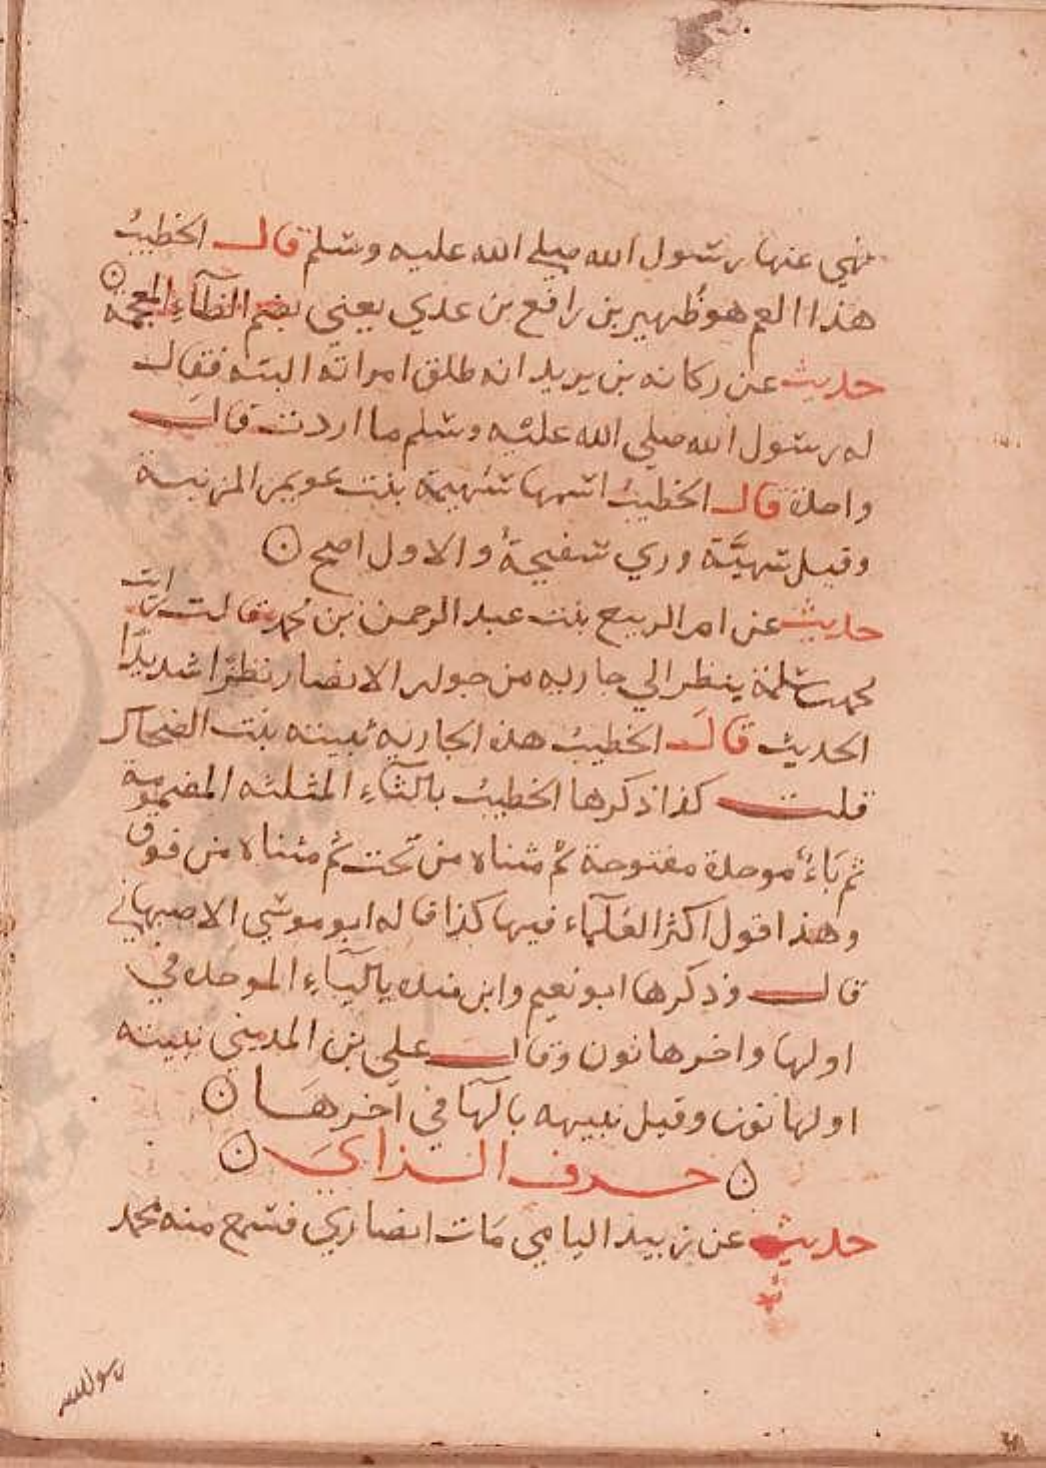 نهي عنها رسول الله صلي الله عليه وسلم قال الخطيبُ
هذا العم هو ظُهير بن رافع بن عدي يعني بضم الظآءِ المعجمة ن
حديث عن ركانه بن يريد انه طلق امراته البته فقال
له رسول الله صلي الله عليه وسلم ما اردت قال
واحدة قال الخطيبُ اسمها سُهيمة بنت عويمر المزنية
وقيل سهيَّة وري سفيحةُ والاول اصح ن
حديث عن ام الربيع بنت عبد الرحمن بن محمد قالت رايت
محمد بن سلمة ينظر الي جاريه من جوار الانصار نظرًا شديدًا
الحديث قالَ الخطيبُ هذه الجاريه ثبيته بنت الضحاك
قلت كذا ذكرها الخطيبُ بالثآءِ المثلثه المضمومة
ثم بَاءٌ موحدة مفتوحة ثم مثناه من تحت ثم مثناه من فوق
وهذا قول اكثر العُلمآء فيها كذا قاله ابو موسي الاصبهاني
قال وذكرها ابو نعيم وابن منده بالبآءِ الموحده في
اولها واخرها نون وقال علي بن المديني نبيته
اولها نون وقيل نبيهه بالهآ في اخرهَا ن
ن حرف الزايَ ن
حديث عن زبيد اليامي مَات انصاري فسمع منه محمد
رسول الله